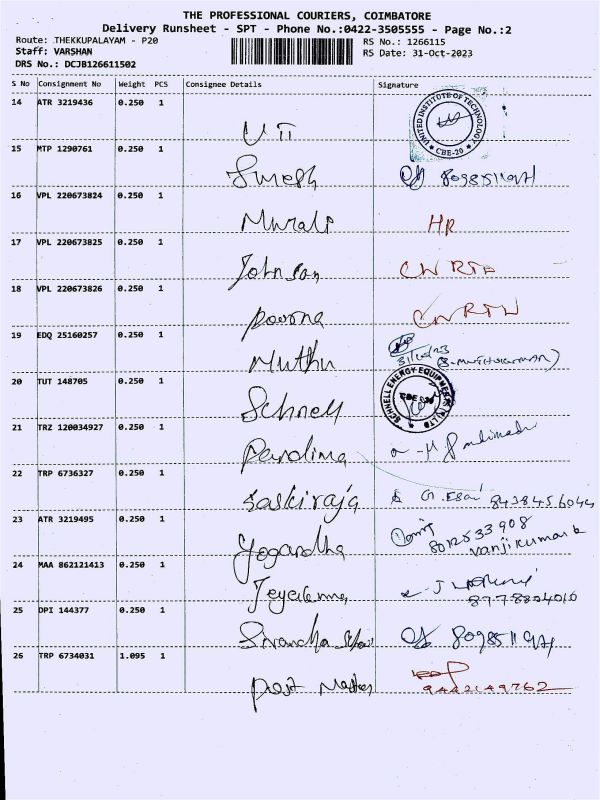 THE PROFESSIONAL COURIERS, COIMBATORE
Delivery Runsheet - SPT - Phone No.:0422-3505555 - Page No.:2
Route: THEKKUPALAYAM - P20
RS No.: 1266115
Staff: VARSHAN
RS Date: 31-Oct-2023
DRS No.: DCJB126611502
S No Consignment No Weight PCS Consignee Details Signature
14 ATR 3219436 0.250 1
UNITED INSTITUTE OF TECHNOLOGY
* CBE-20 *
UTI
15 MTP 1290761 0.250 1
Suresh
16 VPL 220673824 0.250 1
Murali HR
17 VPL 220673825 0.250 1
Johnson
18 VPL 220673826 0.250 1
Poorna
19 EDQ 25160257 0.250 1
Muthu 31/10/23
20 TUT 148705 0.250 1
SCHNELL ENERGY EQUIPMENTS (P) LTD
Schnell
21 TRZ 120034927 0.250 1
22 TRP 6736327 0.250 1
Saskiraja G. Esai 8438456044
23 ATR 3219495 0.250 1
8012533908
Vanjikumar k
24 MAA 862121413 0.250 1
25 DPI 144377 0.250 1
26 TRP 6734031 1.095 1
Post Master 9442149762